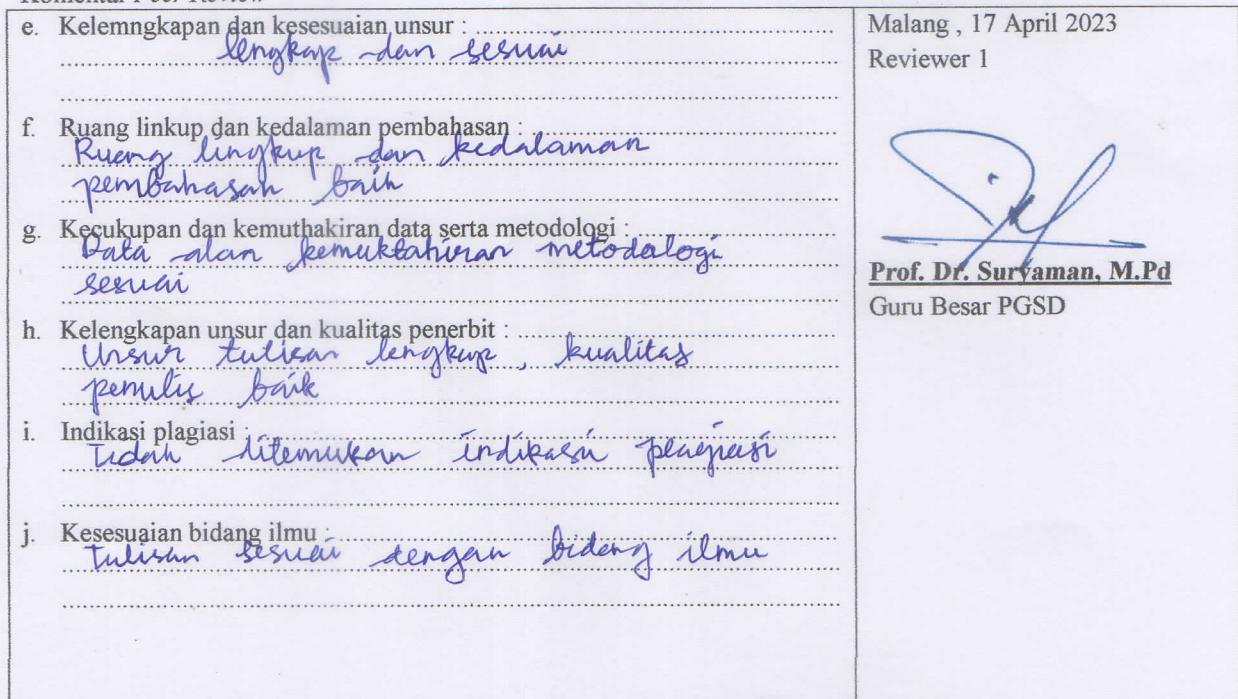 Komentar Peer Review
e. Kelemngkapan dan kesesuaian unsur :
lengkap dan sesuai
f. Ruang linkup dan kedalaman pembahasan :
Ruang lingkup dan kedalaman
pembahasan baik
g. Kecukupan dan kemuthakiran data serta metodologi :
Data dan kemuktahiran metodologi
sesuai
h. Kelengkapan unsur dan kualitas penerbit :
Unsur tulisan lengkap, kualitas
penulis baik
i. Indikasi plagiasi :
Tidak ditemukan indikasi plagiasi
j. Kesesuaian bidang ilmu :
Tulisan sesuai dengan bidang ilmu
Malang , 17 April 2023
Reviewer 1
Prof. Dr. Suryaman, M.Pd
Guru Besar PGSD